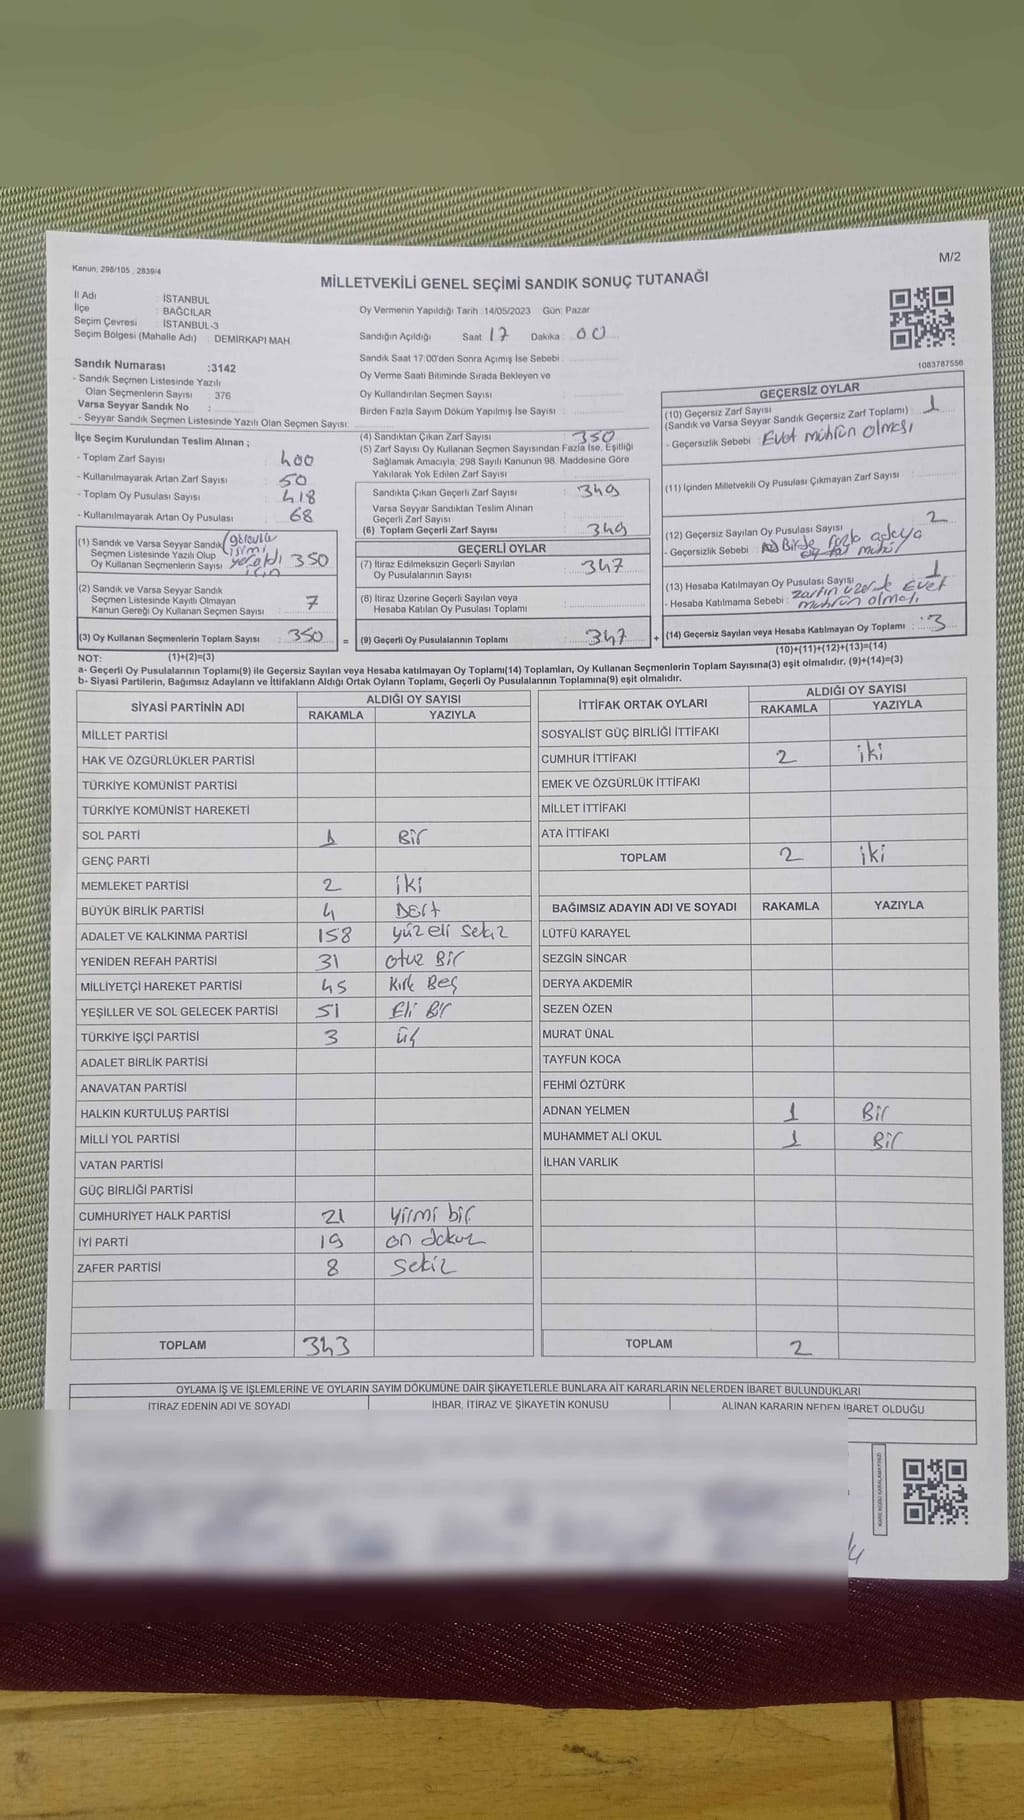 M/2
Kanun, 298/105 , 2839/4
MİLLETVEKİLİ GENEL SEÇİMİ SANDIK SONUÇ TUTANAĞI
İl Adı : İSTANBUL
İlçe : BAĞCILAR
Seçim Çevresi : İSTANBUL-3
Seçim Bölgesi (Mahalle Adı) : DEMİRKAPI MAH.
Oy Vermenin Yapıldığı Tarih :14/05/2023 Gün: Pazar
Sandığın Açıldığı Saat 17 Dakika 00
Sandık Saat 17:00'den Sonra Açımış İse Sebebi
Oy Verme Saati Bitiminde Sırada Bekleyen ve
Oy Kullandırılan Seçmen Sayısı
Birden Fazla Sayım Döküm Yapılmış İse Sayısı :
1083787556
Sandık Numarası :3142
- Sandık Seçmen Listesinde Yazılı
Olan Seçmenlerin Sayısı : 376
Varsa Seyyar Sandık No :
- Seyyar Sandık Seçmen Listesinde Yazılı Olan Seçmen Sayısı:
İlçe Seçim Kurulundan Teslim Alınan ;
- Toplam Zarf Sayısı : 400
- Kullanılmayarak Artan Zarf Sayısı : 50
- Toplam Oy Pusulası Sayısı : 418
- Kullanılmayarak Artan Oy Pusulası : 68
(1) Sandık ve Varsa Seyyar Sandık
Seçmen Listesinde Yazılı Olup
Oy Kullanan Seçmenlerin Sayısı 350
ismi
için
(2) Sandık ve Varsa Seyyar Sandık
Seçmen Listesinde Kayıtlı Olmayan
Kanun Gereği Oy Kullanan Seçmen Sayısı 7
(3) Oy Kullanan Seçmenlerin Toplam Sayısı 350 =
(1)+(2)=(3)
(4) Sandıktan Çıkan Zarf Sayısı : 350
(5) Zarf Sayısı Oy Kullanan Seçmen Sayısından Fazla İse, Eşitliği
Sağlamak Amacıyla, 298 Sayılı Kanunun 98. Maddesine Göre
Yakılarak Yok Edilen Zarf Sayısı
Sandıkta Çıkan Geçerli Zarf Sayısı : 349
Varsa Seyyar Sandıktan Teslim Alınan
Geçerli Zarf Sayısı
(6) Toplam Geçerli Zarf Sayısı : 349
GEÇERLİ OYLAR
(7) İtiraz Edilmeksizin Geçerli Sayılan
Oy Pusulalarının Sayısı : 347
(8) İtiraz Üzerine Geçerli Sayılan veya
Hesaba Katılan Oy Pusulası Toplamı
(9) Geçerli Oy Pusulalarının Toplamı : 347 +
GEÇERSİZ OYLAR
(10) Geçersiz Zarf Sayısı
(Sandık ve Varsa Seyyar Sandık Geçersiz Zarf Toplamı) : 1
- Geçersizlik Sebebi : Evet mührün olması
(11) İçinden Milletvekili Oy Pusulası Çıkmayan Zarf Sayısı :
(12) Geçersiz Sayılan Oy Pusulası Sayısı : 2
- Geçersizlik Sebebi : Birde fazla adaya
mührü
(13) Hesaba Katılmayan Oy Pusulası Sayısı : 1
- Hesaba Katılmama Sebebi : zarfın üzerinde Evet
mührün olması
(14) Geçersiz Sayılan veya Hesaba Katılmayan Oy Toplamı : 3
(10)+(11)+(12)+(13)=(14)
NOT:
a- Geçerli Oy Pusulalarının Toplamı(9) ile Geçersiz Sayılan veya Hesaba Katılmayan oy Toplamı(14) Toplamları, Oy Kullanan Seçmenlerin Toplam Sayısına(3) eşit olmalıdır. (9)+(14)=(3)
b- Siyasi Partilerin, Bağımsız Adayların ve İttifakların Aldığı Ortak Oyların Toplamı, Geçerli Oy Pusulalarının Toplamına(9) eşit olmalıdır.
SİYASİ PARTİNİN ADI ALDIĞI OY SAYISI
RAKAMLA YAZIYLA
MİLLET PARTİSİ
HAK VE ÖZGÜRLÜKLER PARTİSİ
TÜRKİYE KOMÜNİST PARTİSİ
TÜRKİYE KOMÜNİST HAREKETİ
SOL PARTİ 1 Bir
GENÇ PARTİ
MEMLEKET PARTİSİ 2 iki
BÜYÜK BİRLİK PARTİSİ 4 Dört
ADALET VE KALKINMA PARTİSİ 158 yüz eli sekiz
YENİDEN REFAH PARTİSİ 31 otuz Bir
MİLLİYETÇİ HAREKET PARTİSİ 45 Kırk Beş
YEŞİLLER VE SOL GELECEK PARTİSİ 51 Eli Bir
TÜRKİYE İŞÇİ PARTİSİ 3 üç
ADALET BİRLİK PARTİSİ
ANAVATAN PARTİSİ
HALKIN KURTULUŞ PARTİSİ
MİLLİ YOL PARTİSİ
VATAN PARTİSİ
GÜÇ BİRLİĞİ PARTİSİ
CUMHURİYET HALK PARTİSİ 21 yirmi bir
İYİ PARTİ 19 on dokuz
ZAFER PARTİSİ 8 sekiz
TOPLAM 343
İTTİFAK ORTAK OYLARI ALDIĞI OY SAYISI
RAKAMLA YAZIYLA
SOSYALİST GÜÇ BİRLİĞİ İTTİFAKI
CUMHUR İTTİFAKI 2 iki
EMEK VE ÖZGÜRLÜK İTTİFAKI
MİLLET İTTİFAKI
ATA İTTİFAKI
TOPLAM 2 iki
BAĞIMSIZ ADAYIN ADI VE SOYADI RAKAMLA YAZIYLA
LÜTFÜ KARAYEL
SEZGİN SİNCAR
DERYA AKDEMİR
SEZEN ÖZEN
MURAT ÜNAL
TAYFUN KOCA
FEHMİ ÖZTÜRK
ADNAN YELMEN 1 Bir
MUHAMMET ALİ OKUL 1 Bir
İLHAN VARLIK
TOPLAM 2
OYLAMA İŞ VE İŞLEMLERİNE VE OYLARIN SAYIM DÖKÜMÜNE DAİR ŞİKAYETLERLE BUNLARA AİT KARARLARIN NELERDEN İBARET BULUNDUKLARI
İTİRAZ EDENİN ADI VE SOYADI İHBAR, İTİRAZ VE ŞİKAYETİN KONUSU ALINAN KARARIN NEDEN İBARET OLDUĞU